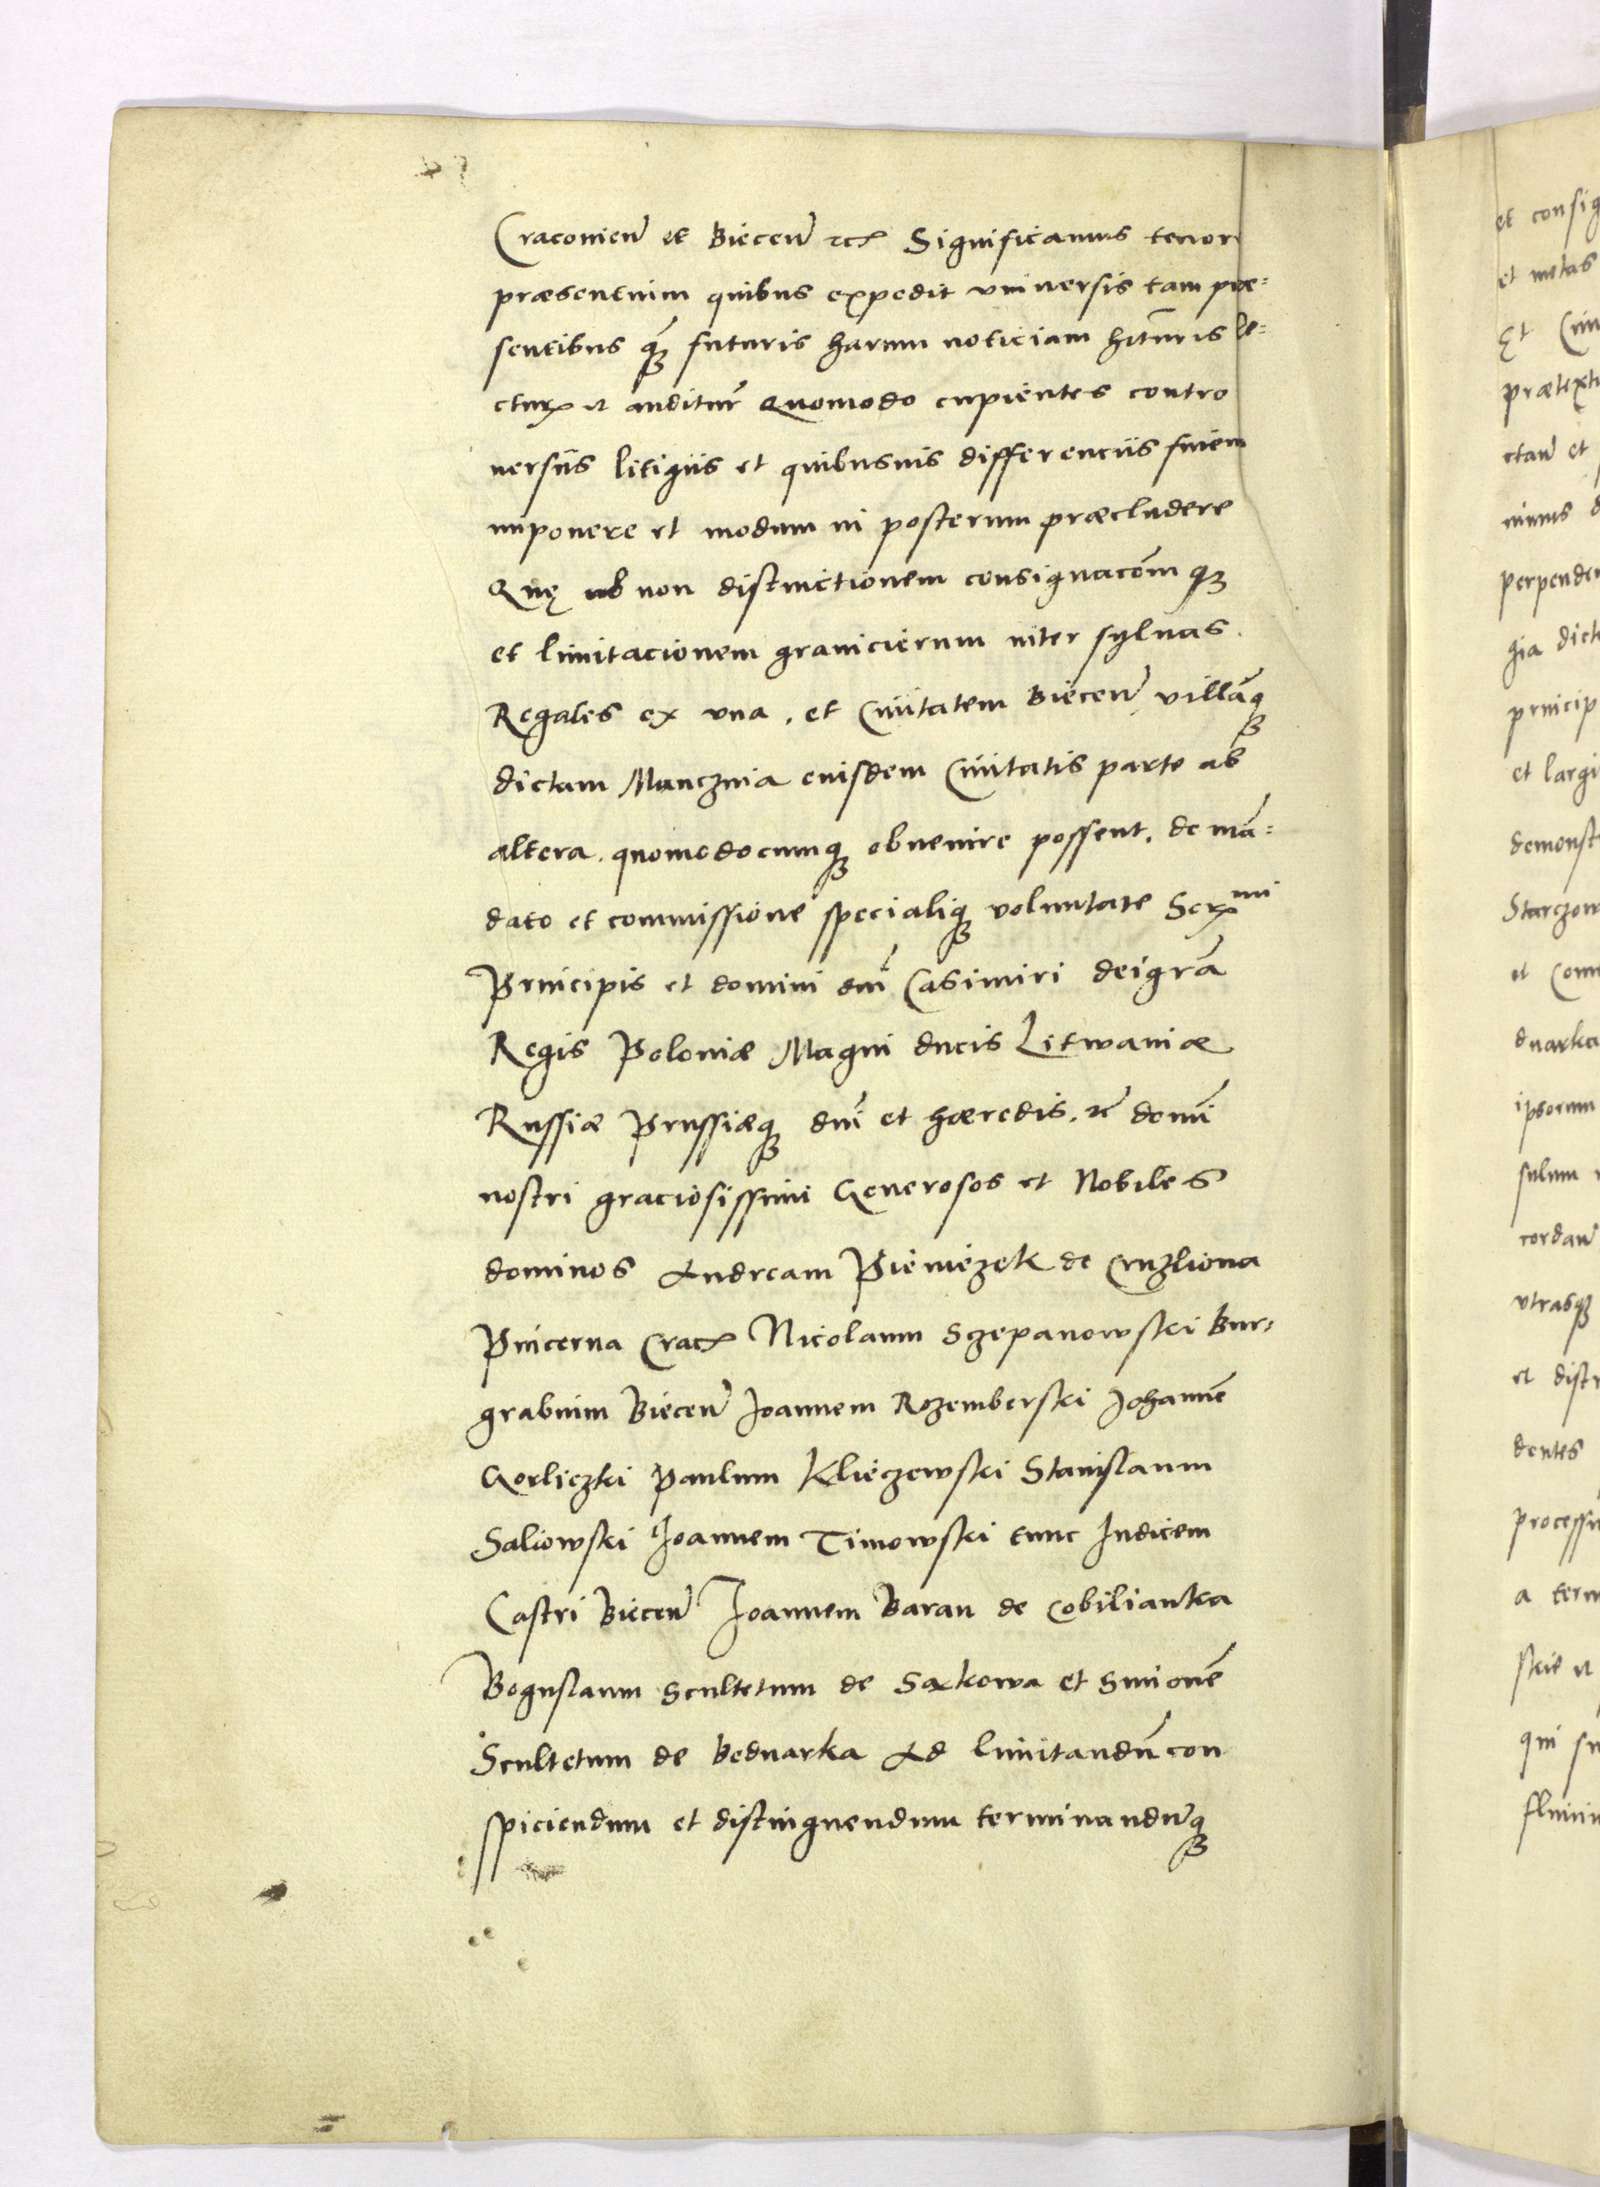 Cracovien̄ et Biecen̄ etc. Significamus tenore
præsentium quibus expedit vniuersis tam præ=
sentibus q̄ȝ futuris harum noticiam hituris le=
ctur. et auditur̄ Quomodo cupientes contro
uersiis litigiis et quibusuis differenciis finem
imponere et modum in posterum præcludere
Quę ob non distinctionem consignacōm qȝ
et limitacionem granicierum inter syluas
Regales ex vna . et Ciuitatem Biecen̄ villāqȝ
dictam Mancznia eiusdem Ciuitatis parte ab
altera . quomodocumqȝ obuenire possent . de mā=
dato et commissione specialiqȝ voluntate Ser.mi
Principis et domini dnī Casimiri dei grā
Regis Poloniæ Magni ducis Litwaniæ
Russiæ Prussiæqȝ dnī et hæredis . etc̄ domī
nostri graciosissimi Generosos et Nobiles
dominos Andream Pieniezek de Cruzliova
Pincerna Crac. Nicolaum Sczepanowski Bur=
grabium Biecen̄ Joannem Rozemberski Johannē
Gorliczki Paulum Klieczewski Stanislaum
Saliowski Joannem Timowski tunc Iudicem
Castri Biecen̄ Joannem Baran de Cobilianka
Boguslaum Scultetum de Sækowa et Simonē
Scultetum de Bednarka Ad limitandū con
spiciendum et distinguendum terminandūqȝ
et consig
et metas
Et Ciui
prætextu
ctan̄ et
nimus d
perpenden
gia dict
princip
et largi
demonst
Starczow
et Com
dnarka
ipsorum
sulum
cordan̄
vtrasqȝ
et dist
dentes
processu
a term
skie et
qui su
fluuiu